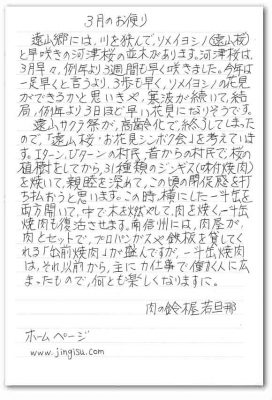 3月のお便り
遠山郷には、川を挟んで、ソメイヨシノ(遠山桜)
と早咲きの河津桜の並木があります。河津桜は、
3月早々、例年より3週間も早く咲きました。今年は
一足早くと言うより、3歩も早く、ソメイヨシノの花見
ができるかと思いきや、寒波が続いて、結
局、例年より3日ほど早い花見になりそうです。
遠山サクラ祭が、高齢化で終了してしまった
ので、「遠山桜・お花見シンボク会」を考えていま
す。Iターン、Uターンの村民、昔からの村民で桜の
植樹をしてから、31種類のジンギス(味付焼肉)
を焼いて、親睦を深めて、この頃の閉促感を打
ち払おうと思います。この時、横にした一斗缶を
両方開いて、中で木を燃やして、肉を焼く、一斗缶
焼肉も復活させます。南信州には、肉屋が、
肉とセットで、プロパンガスや鉄板を貸してく
れる「出前焼肉」が盛んですが、一斗缶焼肉
は、それ以前から、主に力仕事で働く人に広
まったもので、何とも楽しくなりますに。
肉の鈴木屋 若旦那
ホームページ
www.jingisu.com